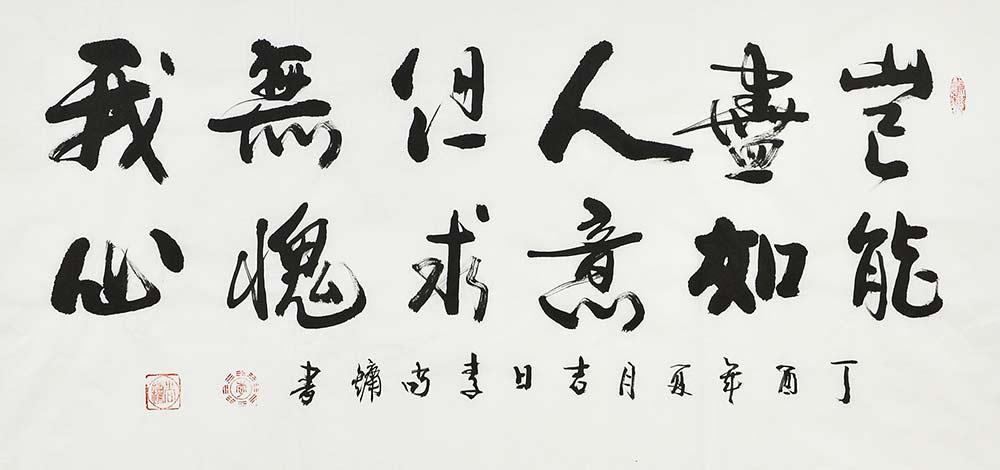 豈能
盡如
人意
但求
無愧
我心
丁酉年夏月吉日李尚鏞書